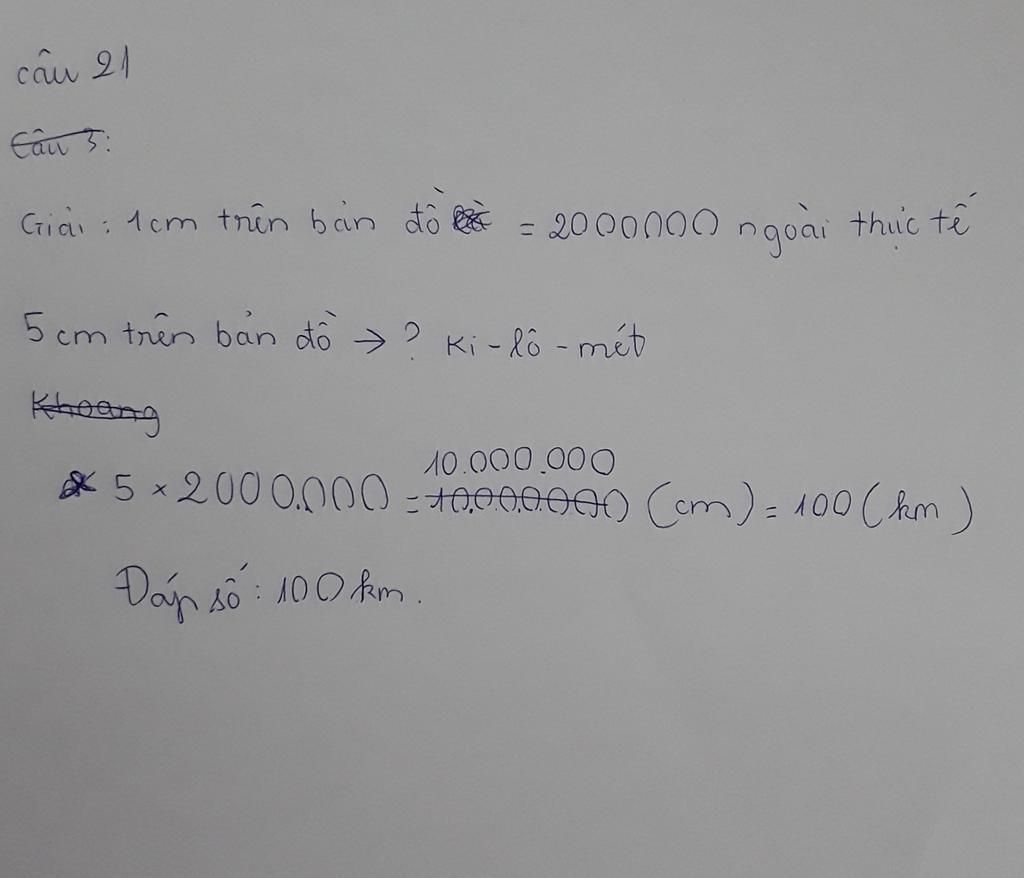 câu 21
Câu 3:
Giải : 1cm trên bản đồ = 2000000 ngoài thực tế
5 cm trên bản đồ → ? Ki - lô - mét
Khoang
10.000.000
5 × 2000.000 = 10.000.000 (cm) = 100 (km)
Đáp số : 100 km.